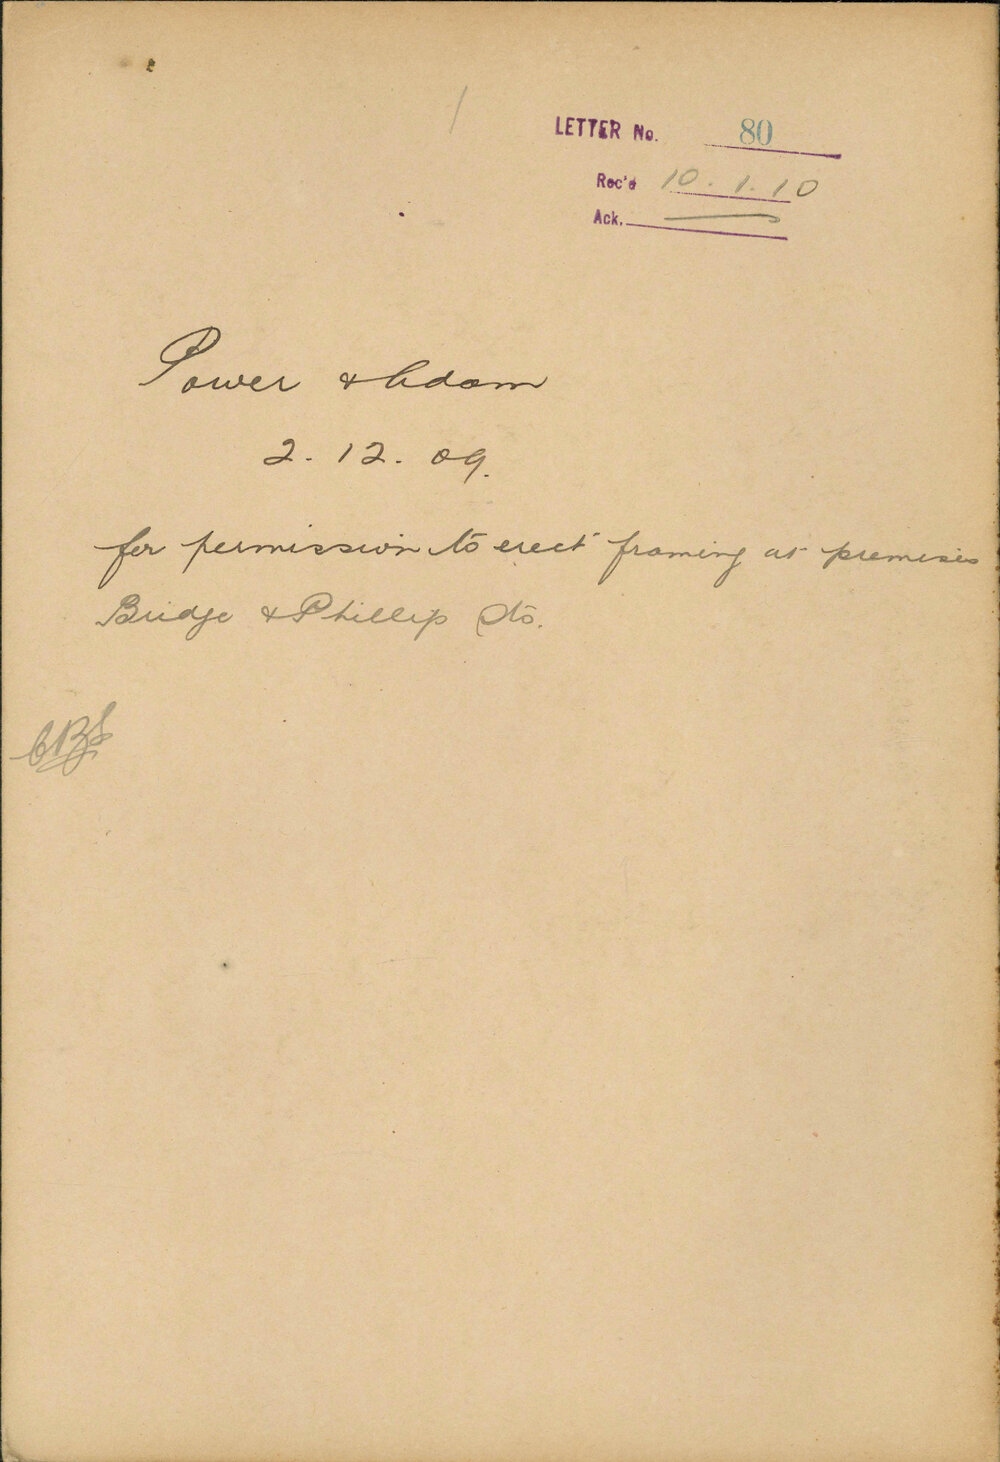 LETTER No. 80
Rec'd 10.1.10
Ack.
Power & Adam
2.12.09.
for permission to erect framing at premises
Bridge & Phillip Sts.